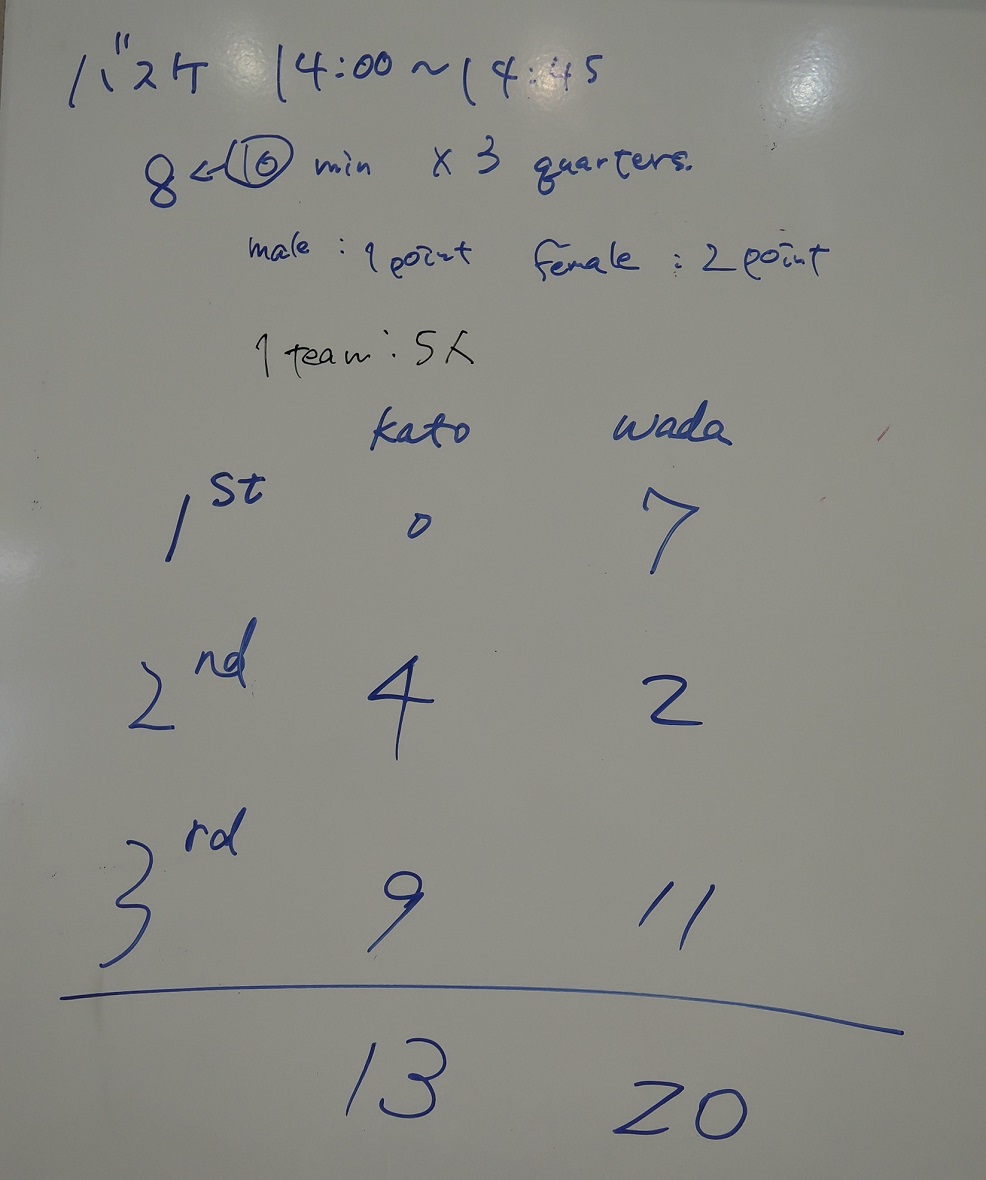 バスケ 14:00~14:45
8 ← 10 min × 3 quarters.
male : 1 point female : 2 point
1 team : 5人
Kato Wada
1st 0 7
2nd 4 2
3rd 9 11
13 20